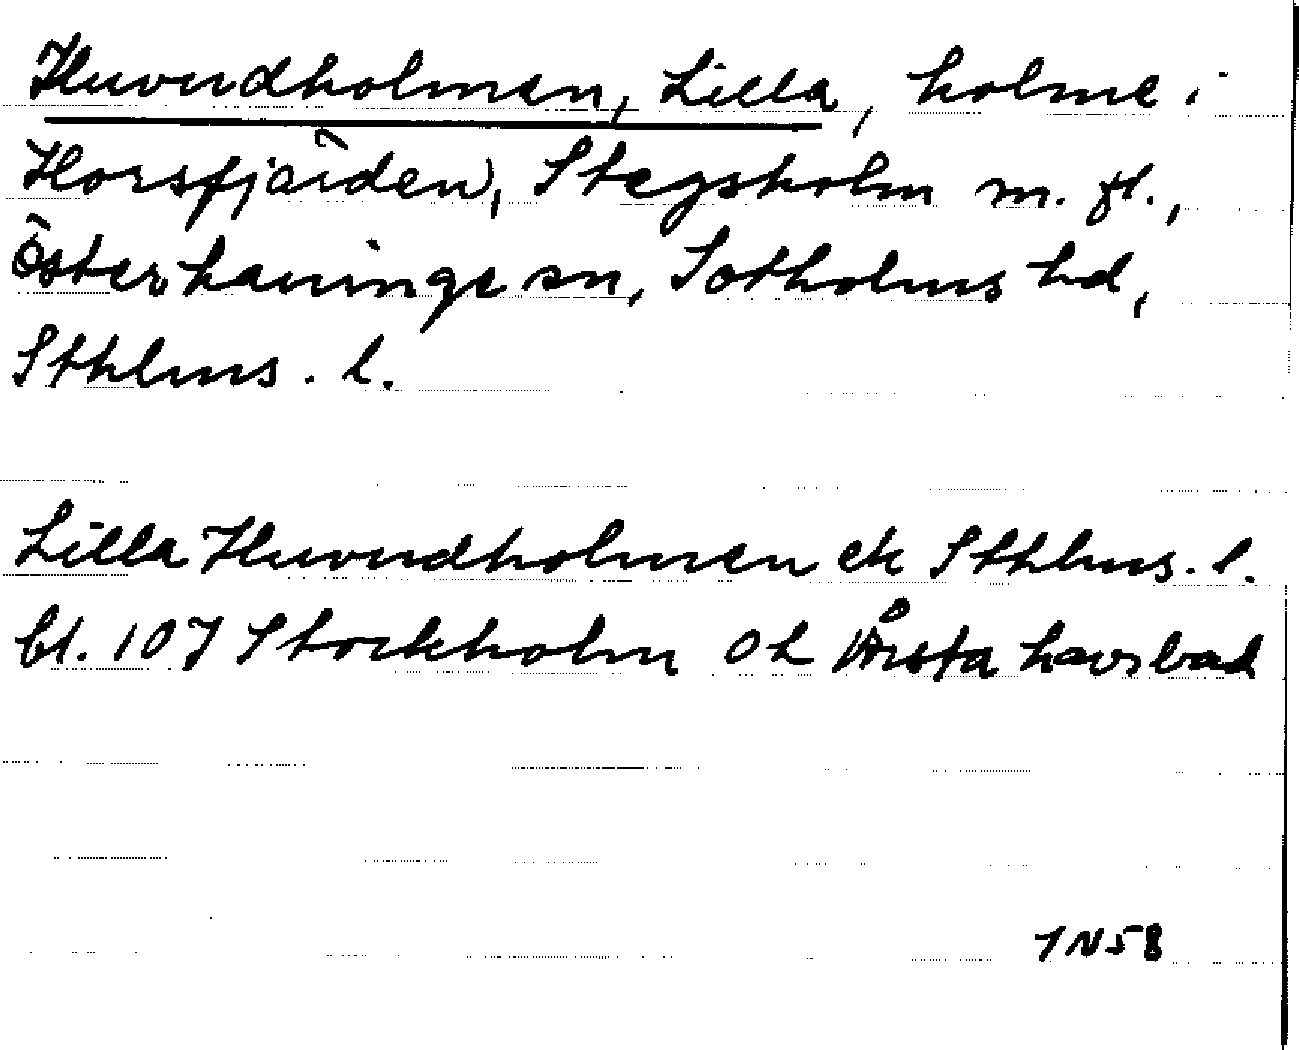 Huvudholmen, Lilla, holme i
Horsfjärden, Stegsholm m. fl.,
Österhaninge sn, Sotholms hd,
Sthlms. l.
Lilla Huvudholmen ek Sthlms. l.
bl. 107 Stockholm oh Årsta havsbad
1N58